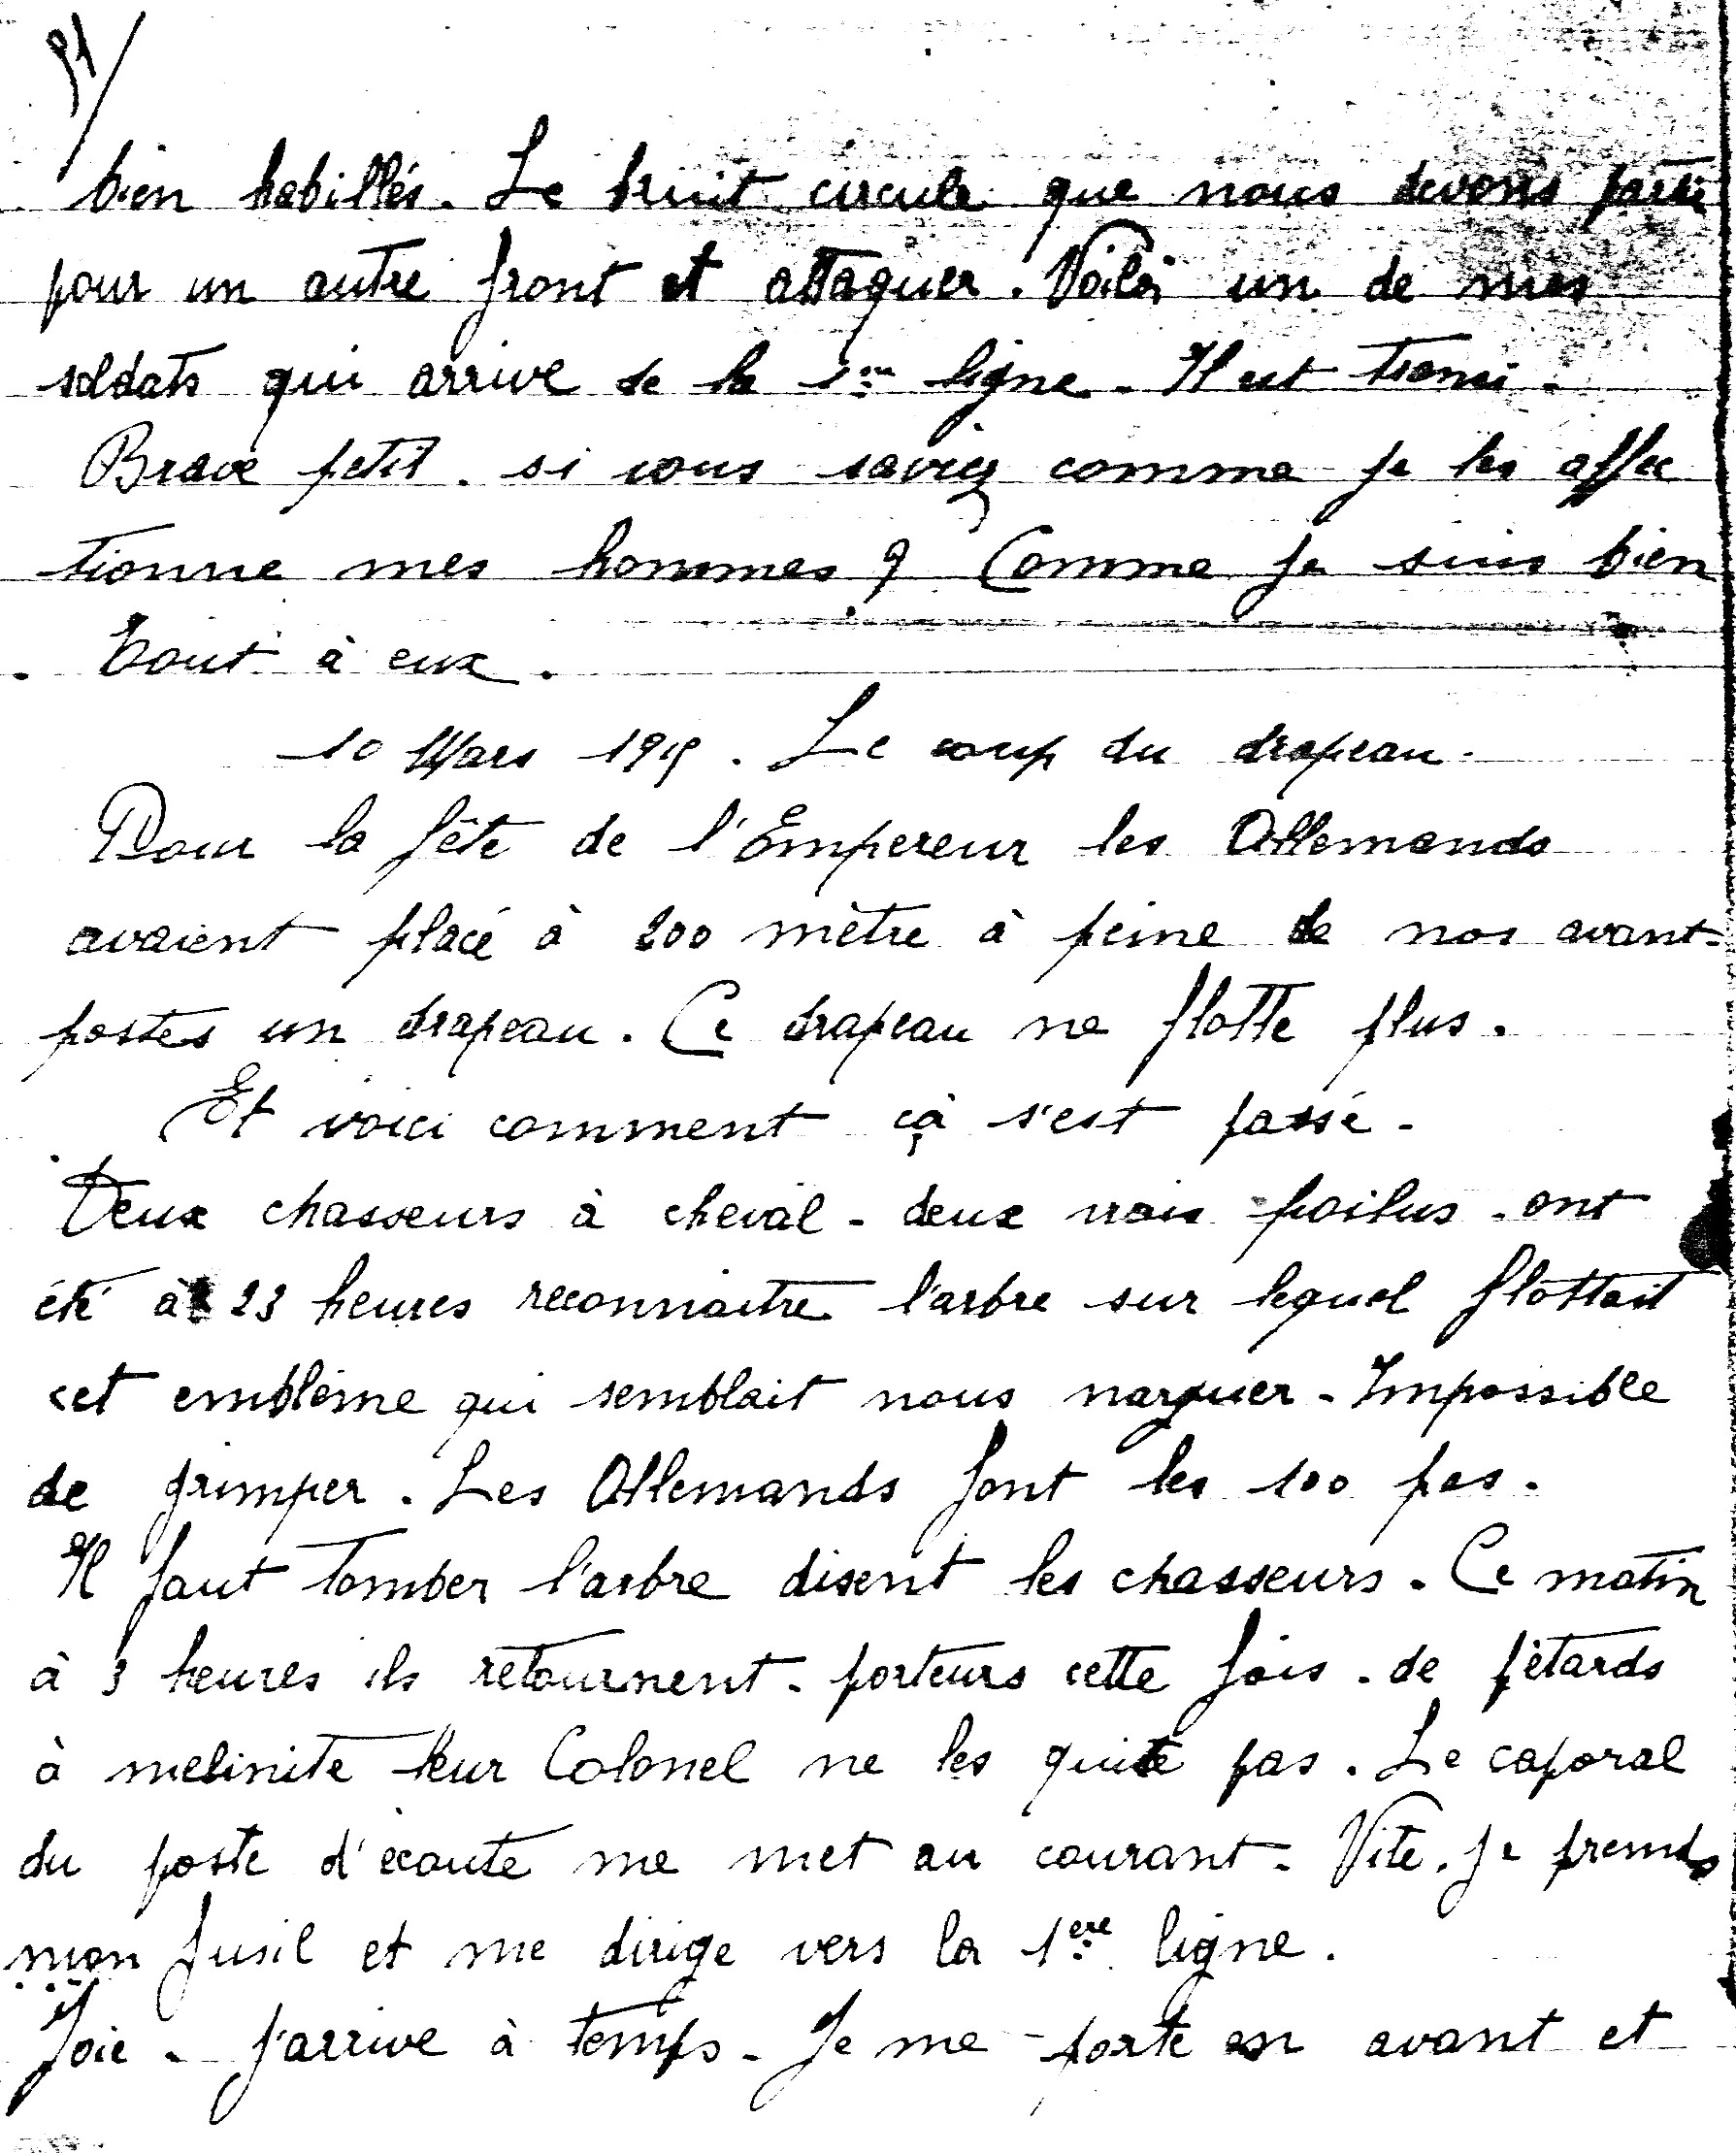 bien habillés. Le bruit circule que nous devons partir
pour un autre front et attaquer. Voilà un de mes
soldats qui arrive de la 1ère ligne. Il est transi.
Brave petit. si vous saviez comme je les affec
tionne mes hommes ? Comme je suis bien
tout à eux.
10 Mars 1915. Le coup du drapeau.
Pour la fête de l'Empereur les Allemands
avaient placé à 200 mètre à peine de nos avant-
postes un drapeau. Ce drapeau ne flotte plus.
Et voici comment çà s'est passé.
Deux chasseurs à cheval - deux vrais poilus - ont
été à 23 heures reconnaitre l'arbre sur lequel flottait
cet emblème qui semblait nous narguer - Impossible
de grimper. Les Allemands font les 100 pas.
Il faut tomber l'arbre disent les chasseurs. Ce matin
à 3 heures ils retournent - porteurs cette fois - de pétards
à melinite leur Colonel ne les quitte pas. Le caporal
du poste d'écoute me met au courant. Vite, je prends
mon fusil et me dirige vers la 1ère ligne.
Joie - j'arrive à temps - Je me porte en avant et